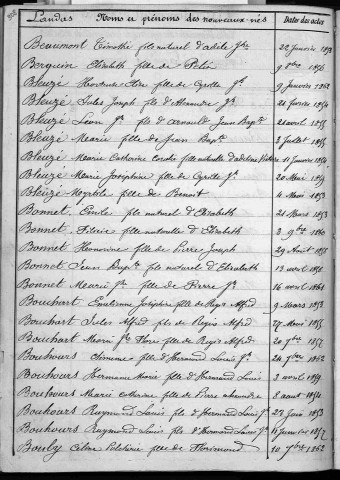 Landas Noms et prénoms des nouveaux-nés Dates des actes
Beaumont Timothé fils naturel d'adèle 22 Janvier 1853
Berquin Elisabeth fille de 9 8bre 1856
Bleuzé fille de Cyrille Jh 9 Janvier 1862
Bleuzé Jules Joseph fils d'Alexandre Jh 21 février 1854
Bleuzé Léon Jh fils d'arnould Jean Bapte 21 avril 1855
Bleuzé Marie fille de Jean Bapte 3 Juillet 1855
Bleuzé Marie Catherine fille naturelle d'adeline 11 Janvier 1854
Bleuzé Marie Joséphine fille de Cyrille Jh 20 Mai 1859
Bleuzé Myrtile fille de Benoit 4 Mai 1853
Bonnet Emile fils naturel d'Elisabeth 21 Mars 1853
Bonnet fille naturelle d'Elisabeth 3 9bre 1860
Bonnet Honorine fille de Pierre Joseph 29 Août 1858
Bonnet Jean Bapte fils naturel d'Elisabeth 13 avril 1858
Bonnet Marie Jh fille de Pierre Jh 16 avril 1861
Bouchart Emelienne Joséphine fille de Régis Alfred 9 Mars 1853
Bouchart Jules Alfred fils de Régis Alfred 27 Mai 1855
Bouchart Marie Flore fille de Régis Alfred 20 7bre 1857
Bouhours Chimène fille d'Hermand Louis Jh 24 7bre 1862
Bouhours Hermance Marie fille d'Hermand Louis 3 avril 1859
Bouhours Marie fille de Pierre 8 aout 1854
Bouhours Raymond Louis fils d'Hermand Louis Jh 27 Juin 1853
Bouhours Raymond Louis fils d'Hermand Louis Jh 11 Janvier 1857
Bouly Céline Pulchérie fille de Florimond 10 7bre 1862